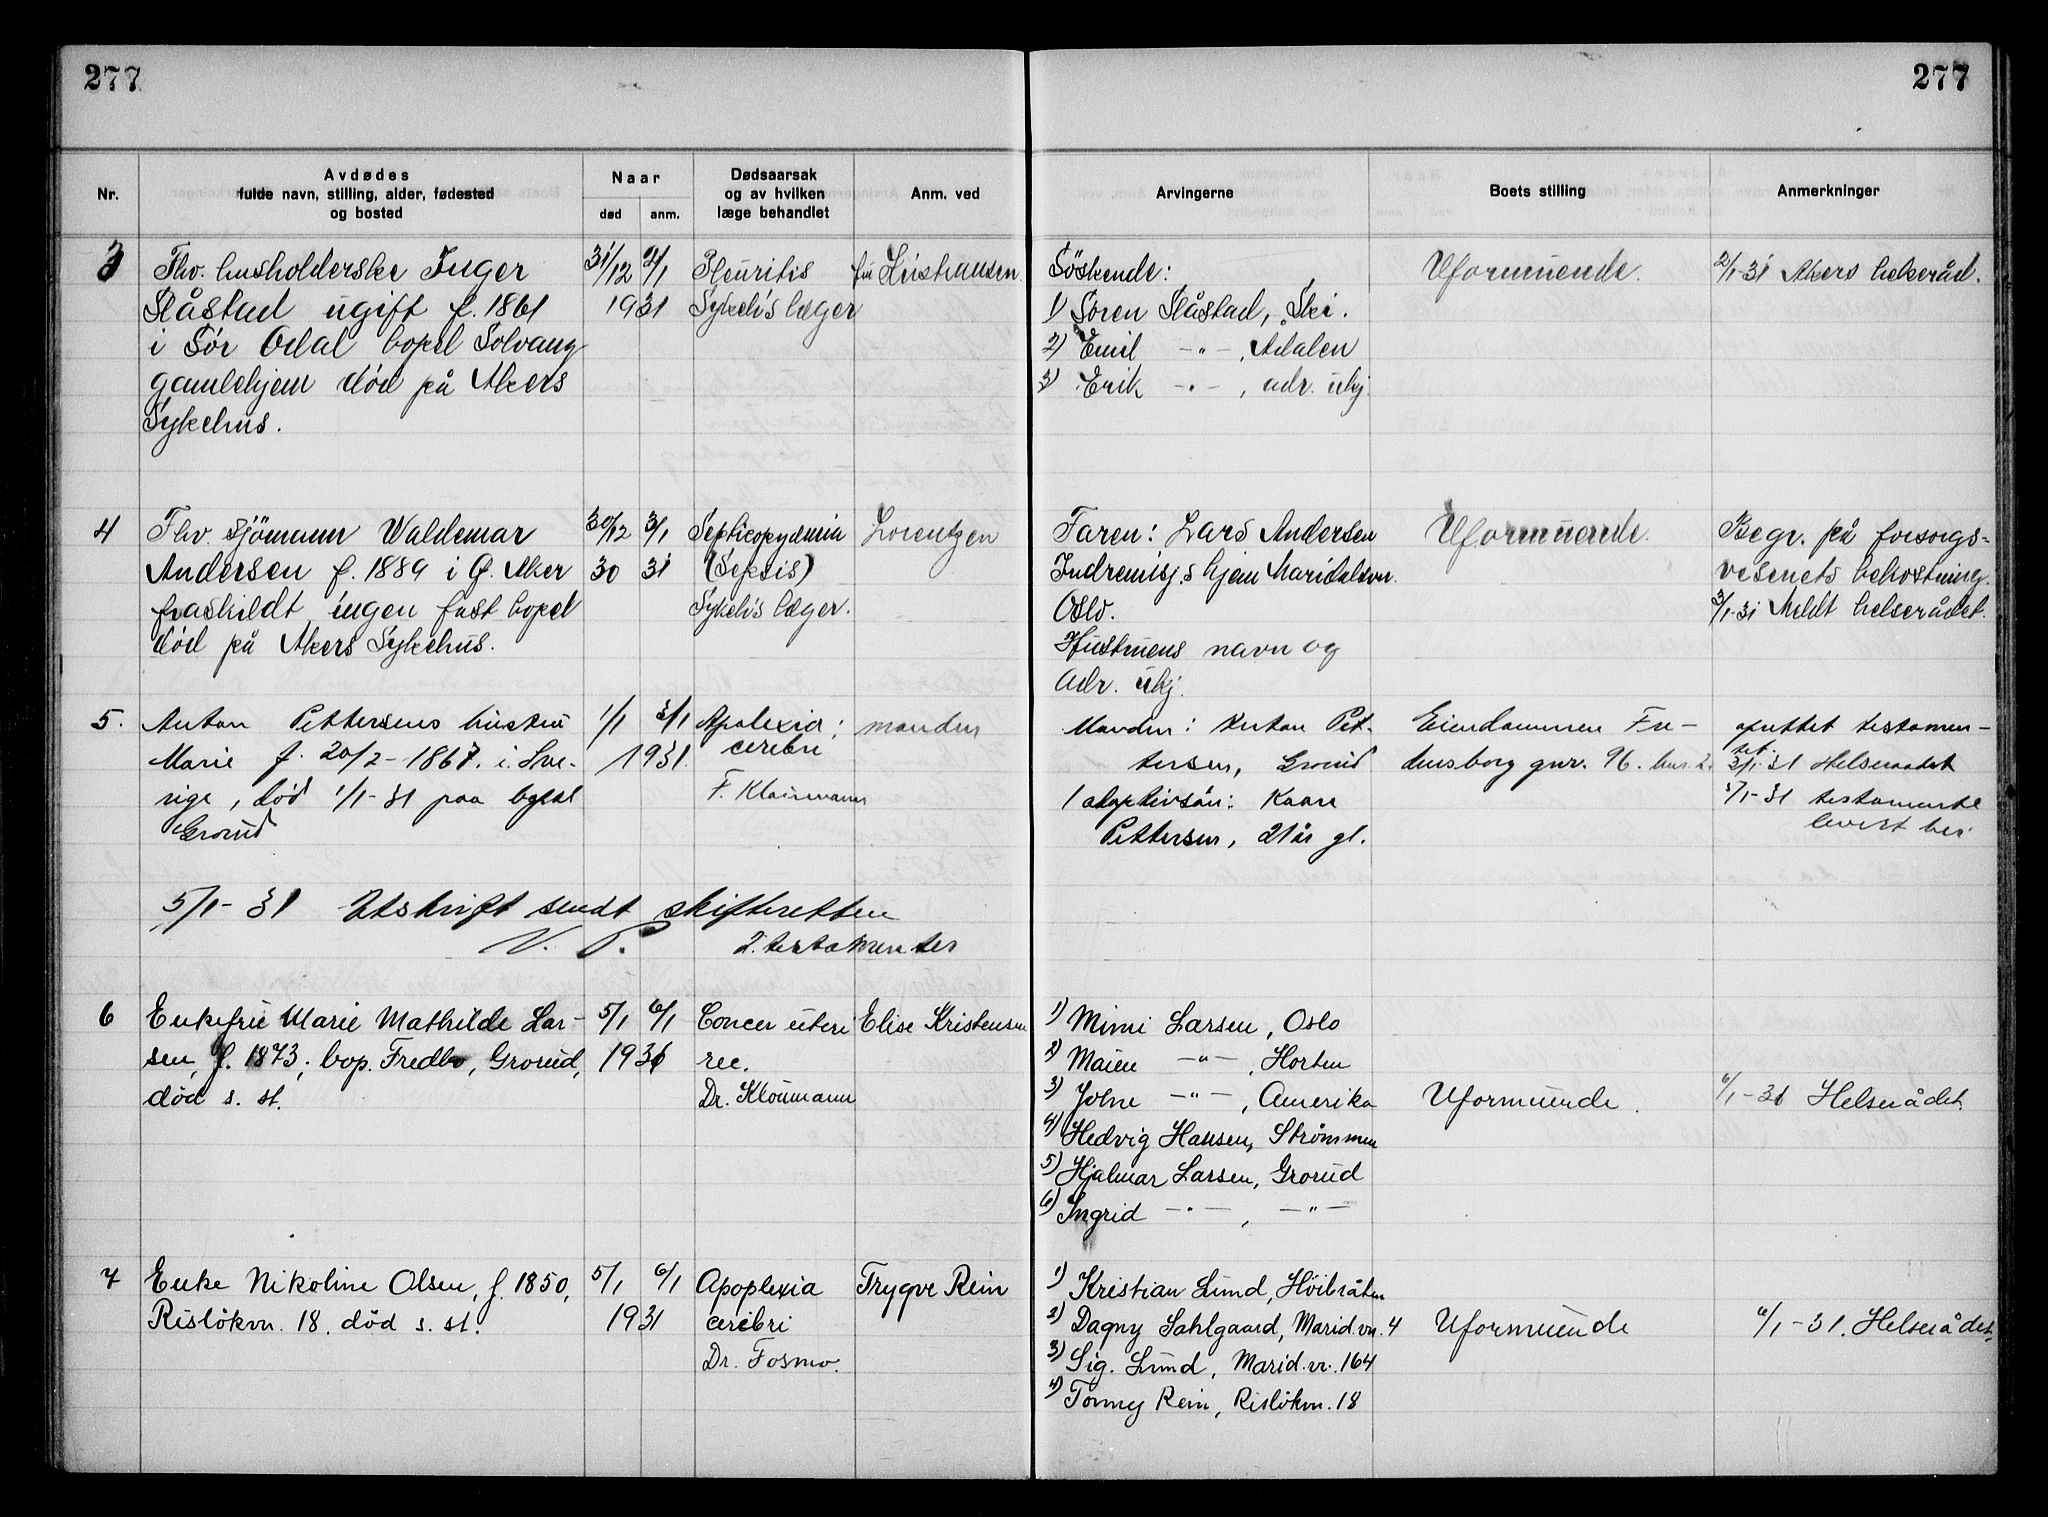 277
277
Nr.
Avdødes
fulde navn, stilling, alder, fødested
og bosted
Naar
død
anm.
Dødsaarsak
og av hvilken
læge behandlet
Anm. ved
Arvingerne
Boets stilling
Anmerkninger
3
Fhv. husholderske Inger
Slåstad ugift f. 1861
i Sör Odal bopel Solvang
gamlehjem död på Akers
Sykehus.
31/12 2/1
1931
Pleuritis
Sykeh's læger
fru Kristiansen
Söskende:
1) Sören Slåstad, Ski.
2) Emil -"-, Ådalen
3) Erik -"-, adr. ukj.
Uformuende.
2/1-31 Akers helseråd.
4
Fhv. sjömann Waldemar
Andersen f. 1889 i Ø. Aker
fraskildt ingen fast bopel
död på Akers Sykehus.
30/12 3/1
30 31
Septicopydmia
(Sepsis)
Sykeh's læger.
Lorentzen
Faren: Lars Andersen
Indremisj.s hjem Maridalsvn.
Oslo.
Hustruens navn og
adr. ukj.
Uformuende.
Begr. på forsorgs-
vesenets bekostning.
3/1-31 Meldt helserådet.
5.
Anton Pettersens hustru
Marie f. 20/2-1867. i Sve-
rige, död 1/1-31 paa bopel
Grorud
1/1 3/1
1931.
Apoplexia
cerebri
F. Kloumann
manden
Manden: Anton Pet-
tersen, Grorud
1 adoptivsön: Kaare
Pettersen, 21 år gl.
Eiendommen Fre-
densborg gnr. 96. bnr. 2.
oprettet testamen-
tet.
3/1-31 Helseraadet
5/1-31 testamente
levert her
5/1-31 Utskrift sendt skifteretten
V. P. 2. testamenter
6
Enkefru Marie Mathilde Lar-
sen, f. 1873, bop. Fredbo, Grorud,
död s. st.
5/1 6/1
1931
Concer uteri
rec.
Dr. Kloumann
Elise Kristensen
1) Mimi Larsen, Oslo
2) Maien -"-, Horten
3) Johne -"-, Amerika
4) Hedvig Hansen, Strømmen
5) Hjalmar Larsen, Grorud
6) Ingrid -"-, -"-
Uformuende.
6/1-31 Helserådet.
7
Enke Nikoline Olsen, f. 1850,
Rislökvn. 18. död s. st.
5/1 6/1
1931
Apoplexia
cerebri
Dr. Fosmo.
Trygve Rein
1) Kristian Lund, Höibråten
2) Dagny Sahlgaard, Marid.vn. 4
3) Sig. Lund, Marid.vn. 164
4) Tommy Rein, Rislökvn. 18
Uformuende
6/1-31. Helserådet.